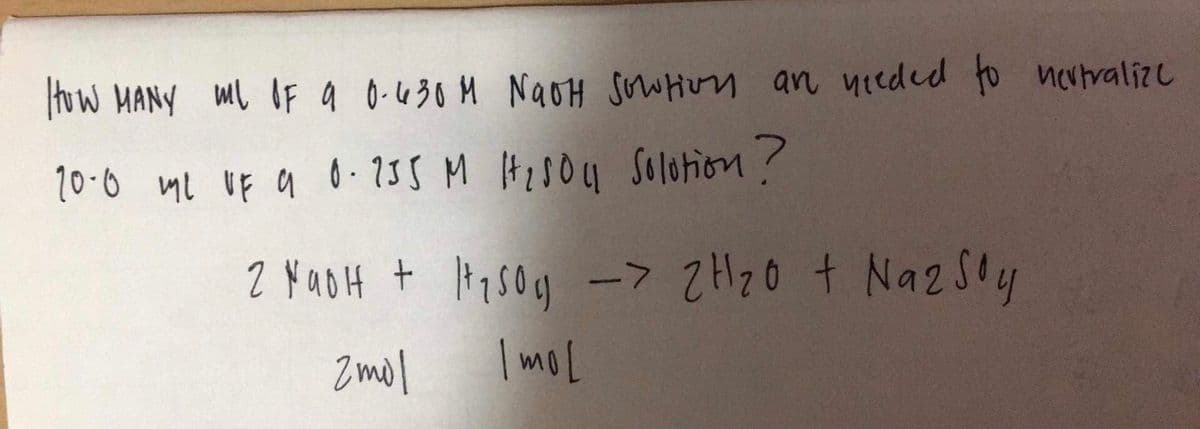 HOW MANY ml OF a 0.430 M NaOH Solution are needed to neutralize
20.0 ml OF a 0.235 M H2SO4 Solution?
2 NaOH + H2SO4 -> 2H2O + Na2SO4
2mol 1 mol